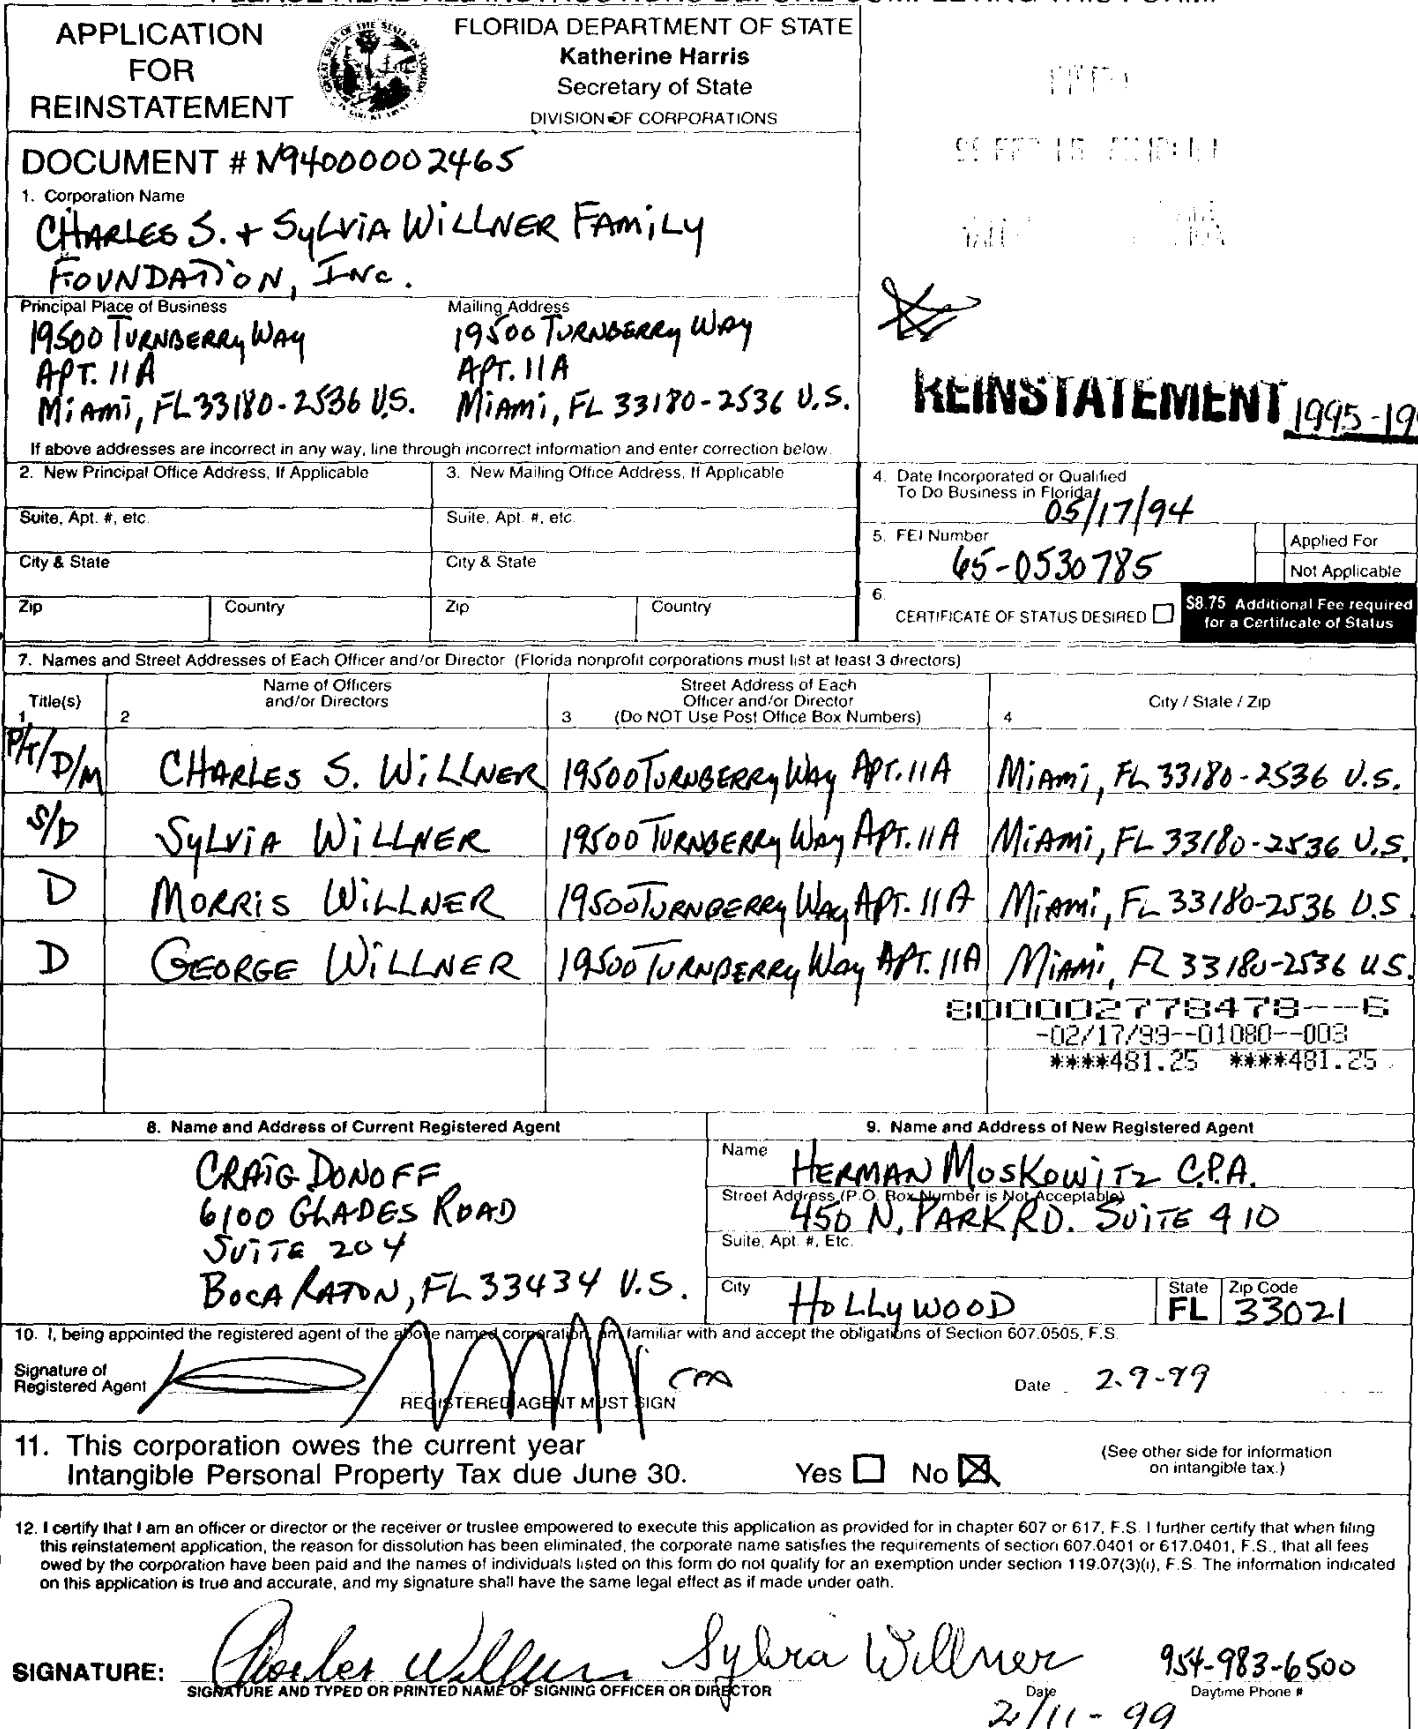 APPLICATION
FOR
REINSTATEMENT
FLORIDA DEPARTMENT OF STATE
Katherine Harris
Secretary of State
DIVISION OF CORPORATIONS
DOCUMENT # N94000002465
1. Corporation Name
CHARLES S. + SYLVIA WILLNER FAMILY
FOUNDATION, INC.
Principal Place of Business
19500 TURNBERRY WAY
APT. 11A
MIAMI, FL 33180-2536 U.S.
Mailing Address
19500 TURNBERRY WAY
APT. 11A
MIAMI, FL 33180-2536 U.S.
REINSTATEMENT 1995-19
If above addresses are incorrect in any way, line through incorrect information and enter correction below.
2. New Principal Office Address, If Applicable
Suite, Apt. #, etc.
City & State
Zip Country
3. New Mailing Office Address, If Applicable
Suite, Apt. #, etc.
City & State
Zip Country
4. Date Incorporated or Qualified
To Do Business in Florida
05/17/94
5. FEI Number
65-0530785
Applied For
Not Applicable
6.
CERTIFICATE OF STATUS DESIRED
$8.75 Additional Fee required
for a Certificate of Status
7. Names and Street Addresses of Each Officer and/or Director (Florida nonprofit corporations must list at least 3 directors)
Title(s)
1
2 Name of Officers
and/or Directors
3 Street Address of Each
Officer and/or Director
(Do NOT Use Post Office Box Numbers)
4 City / State / Zip
P/T/D/M CHARLES S. WILLNER 19500 TURNBERRY WAY APT. 11A MIAMI, FL 33180-2536 U.S.
S/D SYLVIA WILLNER 19500 TURNBERRY WAY APT. 11A MIAMI, FL 33180-2536 U.S.
D MORRIS WILLNER 19500 TURNBERRY WAY APT. 11A MIAMI, FL 33180-2536 U.S
D GEORGE WILLNER 19500 TURNBERRY WAY APT. 11A MIAMI, FL 33180-2536 U.S.
800002778478--6
-02/17/99--01080--003
****481.25 ****481.25
8. Name and Address of Current Registered Agent
CRAIG DONOFF
6100 GLADES ROAD
SUITE 204
BOCA RATON, FL 33434 U.S.
9. Name and Address of New Registered Agent
Name HERMAN MOSKOWITZ C.P.A.
Street Address (P.O. Box Number is Not Acceptable)
450 N. PARK RD. SUITE 410
Suite, Apt. #, Etc.
City HOLLYWOOD State FL Zip Code 33021
10. I, being appointed the registered agent of the above named corporation, am familiar with and accept the obligations of Section 607.0505, F.S.
Signature of
Registered Agent CPA
REGISTERED AGENT MUST SIGN
Date 2-9-99
11. This corporation owes the current year
Intangible Personal Property Tax due June 30.
Yes No
(See other side for information
on intangible tax.)
12. I certify that I am an officer or director or the receiver or trustee empowered to execute this application as provided for in chapter 607 or 617, F.S. I further certify that when filing
this reinstatement application, the reason for dissolution has been eliminated, the corporate name satisfies the requirements of section 607.0401 or 617.0401, F.S., that all fees
owed by the corporation have been paid and the names of individuals listed on this form do not qualify for an exemption under section 119.07(3)(i), F.S. The information indicated
on this application is true and accurate, and my signature shall have the same legal effect as if made under oath.
SIGNATURE: Charles Willner Sylvia Willner 954-983-6500
SIGNATURE AND TYPED OR PRINTED NAME OF SIGNING OFFICER OR DIRECTOR Date Daytime Phone #
2/11-99